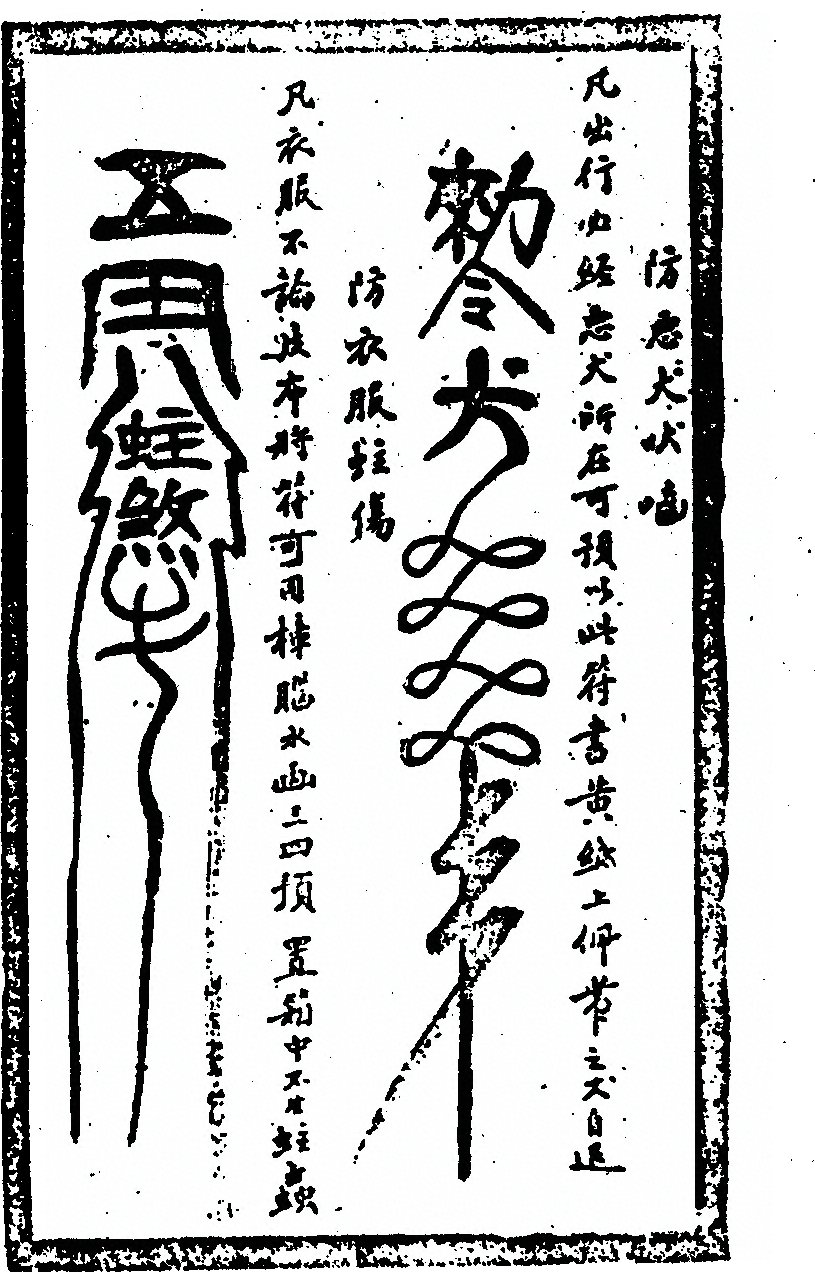 防惡犬吠嚙
凡出行必經惡犬所在可預以此符書黃紙上佩帶之犬自退
勅令犬
防衣服蛀傷
凡衣服不論皮布時符可用樟腦水画三四損置箱中不生蛀蟲
五雷蛀煞